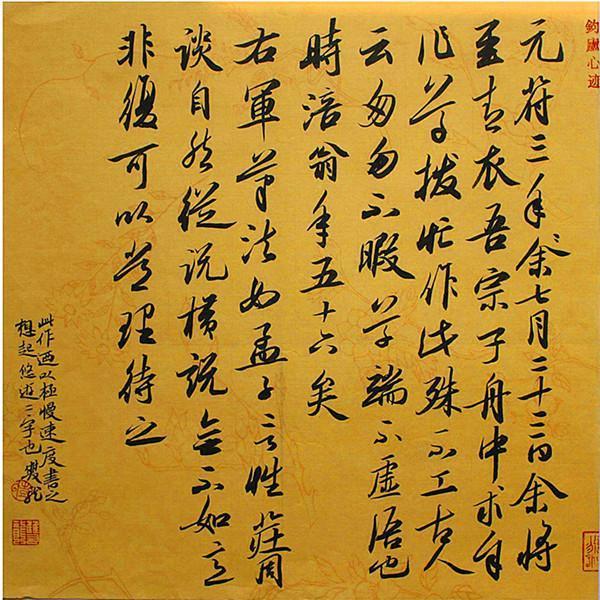 鈞廬心迹
元符三年余七月二十三日余將
至青衣吾宗子舟中求
作草撥忙作此殊不工古人
云匆匆不暇草端不虛語也
時涪翁年五十六矣
右軍筆法如孟子言性莊周
談自然縱說橫說無不如意
非復可以常理待之
此作迺以極慢速度書之
想起悠遊二字也